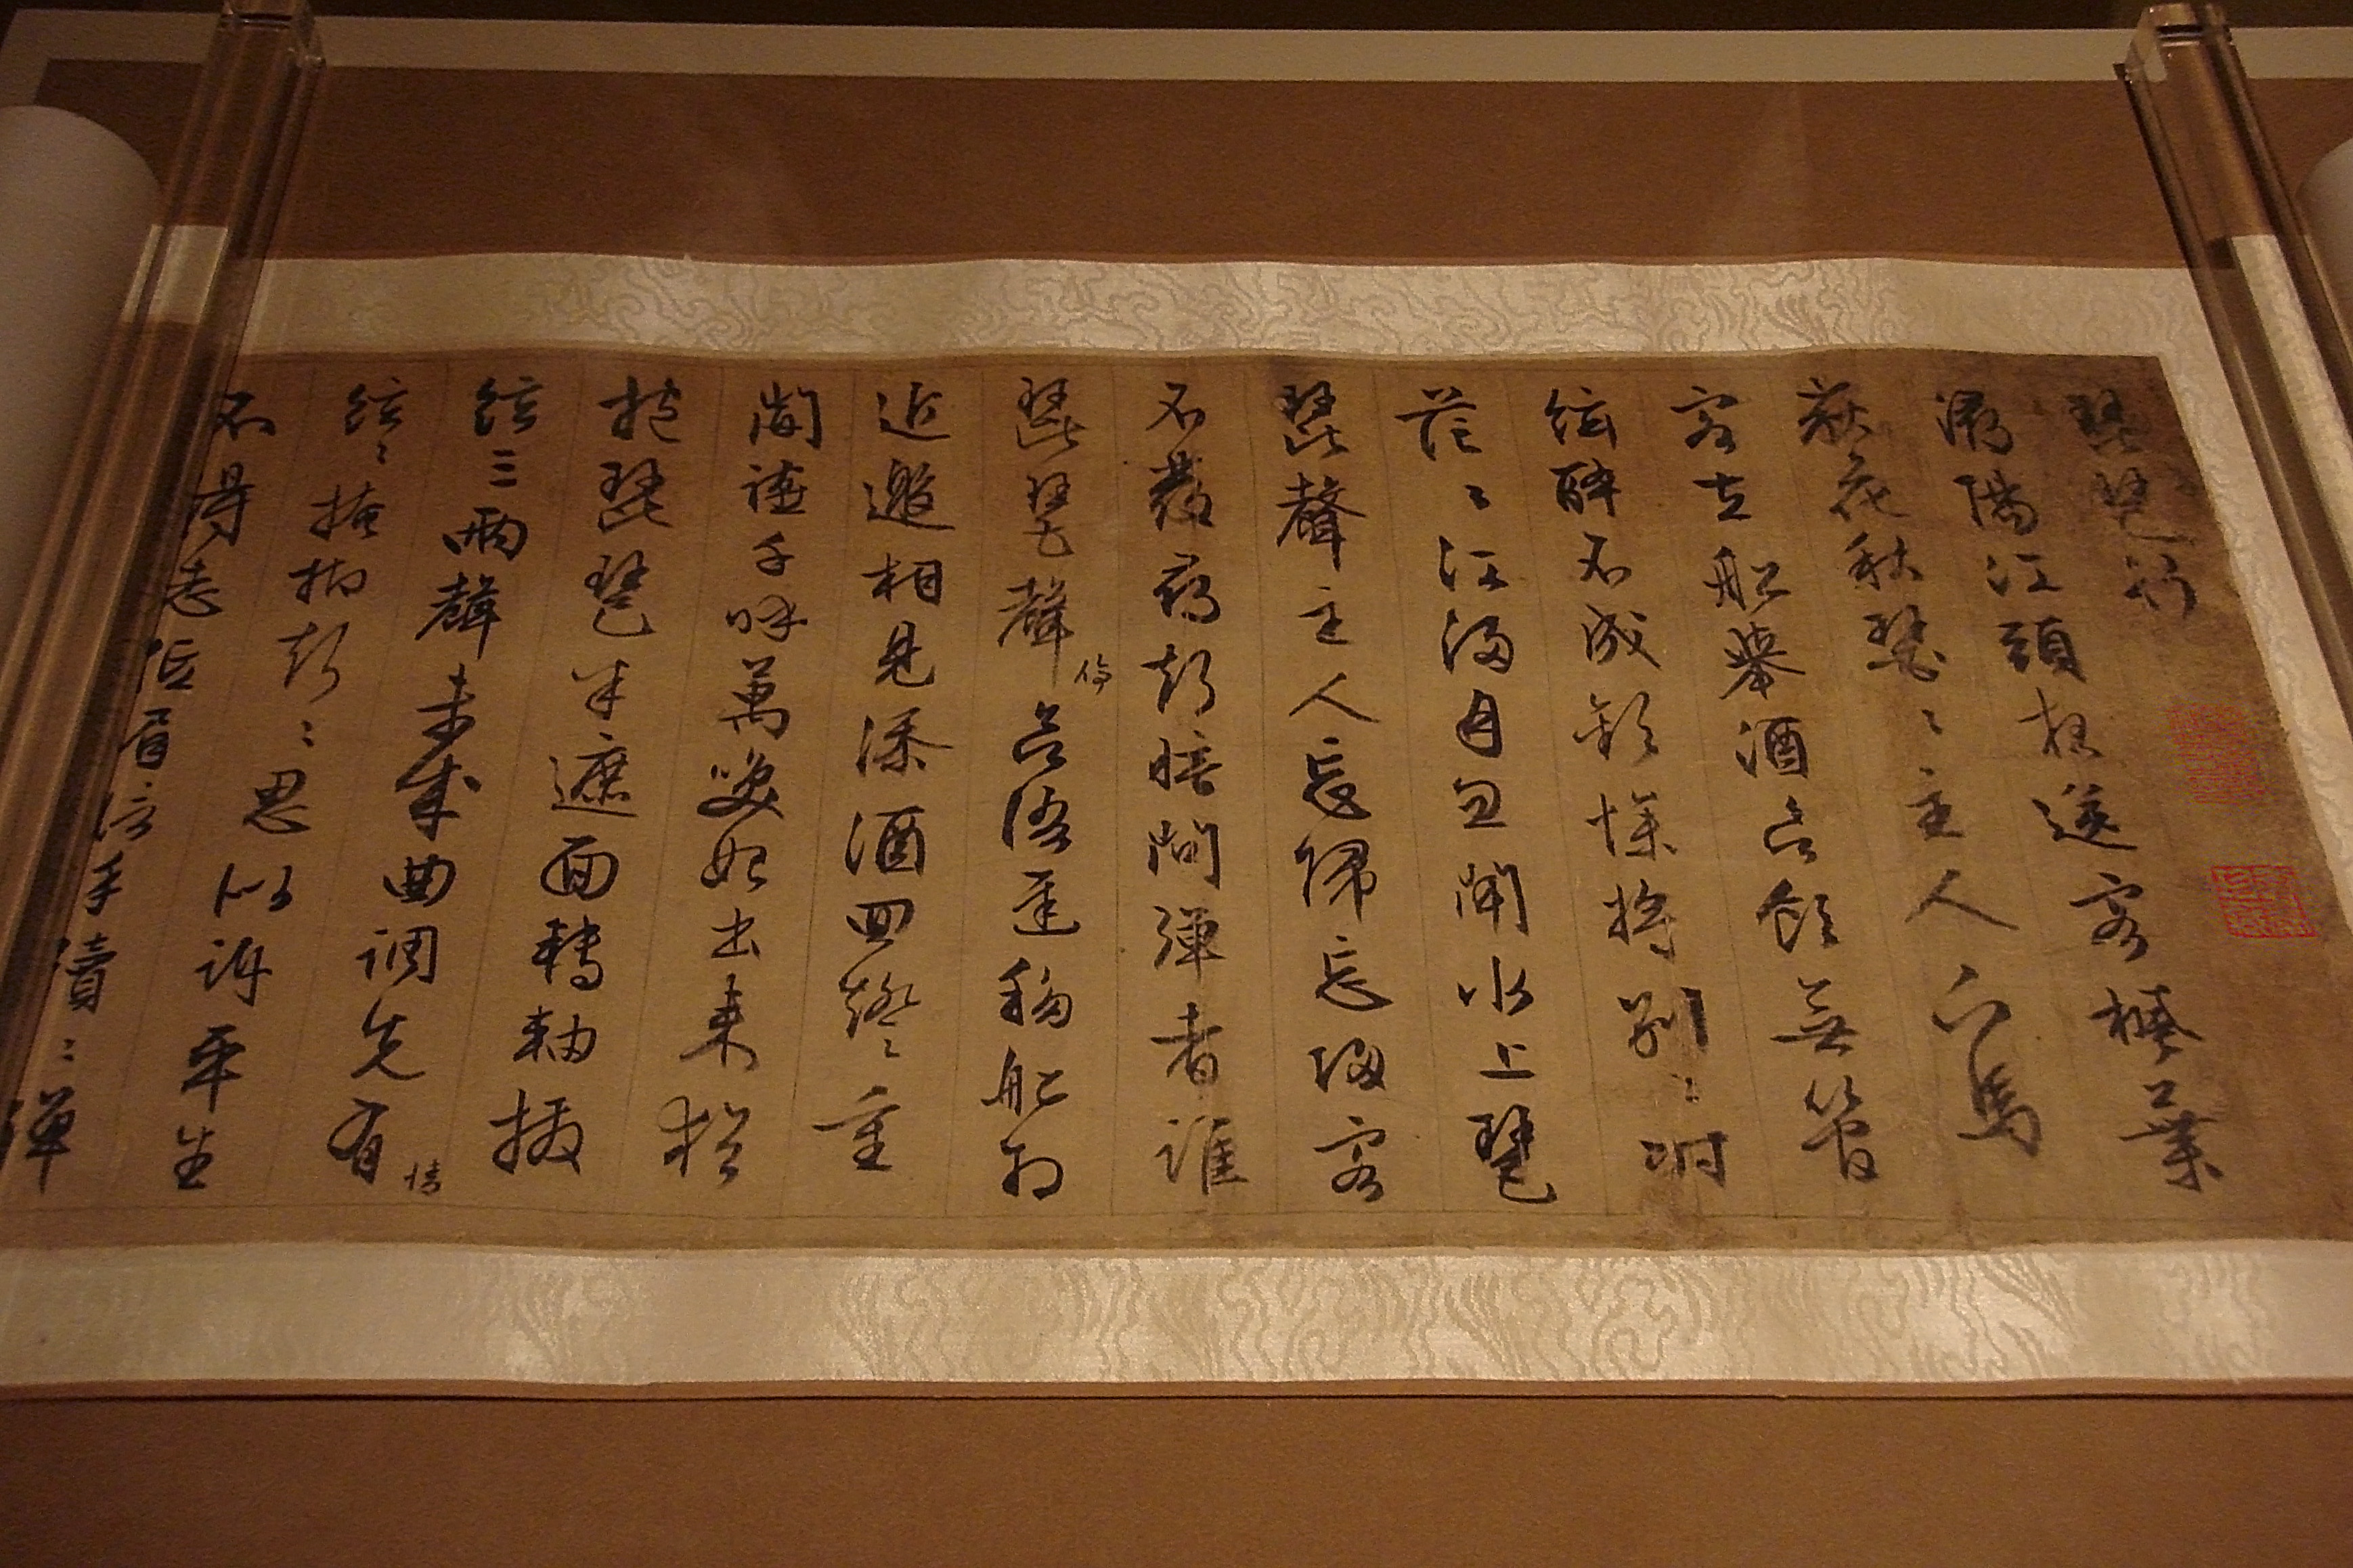 琵琶行
潯陽江頭夜送客楓葉
荻花秋瑟〻主人下馬
客在船舉酒欲飲無管
絃醉不成歡慘將別〻時
茫〻江浸月忽聞水上琶
琵聲主人忘歸忘歸客
不發尋聲暗問彈者誰
琵琶聲停欲語遲移船相
近邀相見添酒回燈〻重
開讌千呼萬喚始出來猶
抱琵琶半遮面轉軸撥
絃三兩聲未成曲調先有情
絃〻掩抑聲〻思似訴平生
不得志低眉信手續〻彈